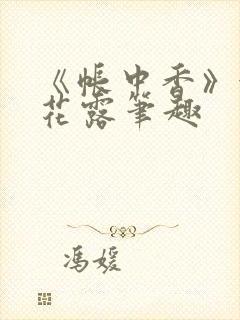 《帐中香》
花露笔趣
冯媛